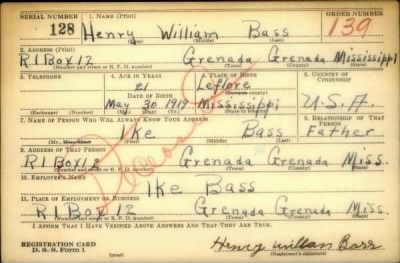 SERIAL NUMBER 1. NAME (Print) ORDER NUMBER
128 Henry William Bass 139
(First) (Middle) (Last)
2. ADDRESS (Print)
R1 Box 12 Grenada Grenada Mississippi
(Number and street or R. F. D. number) (Town) (County) (State)
3. TELEPHONE 4. AGE IN YEARS 5. PLACE OF BIRTH 6. COUNTRY OF CITIZENSHIP
21 Leflore
DATE OF BIRTH (Town or county)
May 30 1919 Mississippi U.S.A.
(Exchange) (Number) (Mo.) (Day) (Yr.) (State or country)
7. NAME OF PERSON WHO WILL ALWAYS KNOW YOUR ADDRESS 8. RELATIONSHIP OF THAT PERSON
Ike Bass Father
(Mr., Mrs., Miss) (First) (Middle) (Last)
9. ADDRESS OF THAT PERSON
R1 Box 12 Grenada Grenada Miss.
(Number and street or R. F. D. number) (Town) (County) (State)
10. EMPLOYER'S NAME
Ike Bass
11. PLACE OF EMPLOYMENT OR BUSINESS
R1 Box 12 Grenada Grenada Miss.
(Number and street or R. F. D. number) (Town) (County) (State)
I AFFIRM THAT I HAVE VERIFIED ABOVE ANSWERS AND THAT THEY ARE TRUE.
REGISTRATION CARD
D. S. S. Form 1 (over) Henry William Bass
(Registrant's signature)